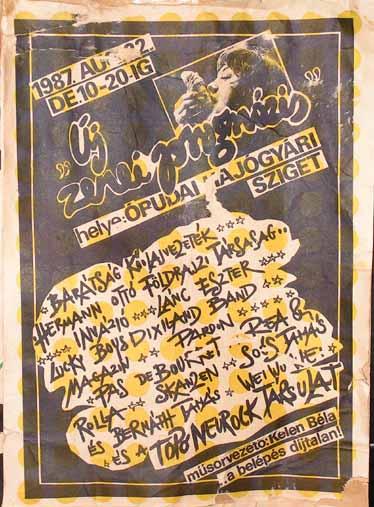 1987. AUG. 2.
DE.10-20-IG
„Új
zenei pragmázis”
helye: ÓBUDAI HAJÓGYÁRI
SZIGET
BARÁTSÁG KULAINEZETÉK
HERMANN OTTÓ FÖLDRAJZI TÁRSASÁG..
INVÁZIÓ LANC ESZTER
LUCKY BOYS DIXILAND BAND
MAGAZIN PARDON REA &
PAS DE BOURRET SOÓS TAMÁS
ROLLA SKANZEN WEI WU
ÉS BERNÁTH TAMÁS
ÉS A TOPO NEUROCK TÁRSULAT
műsorvezető: Kelen Béla
.a belépés díjtalan!